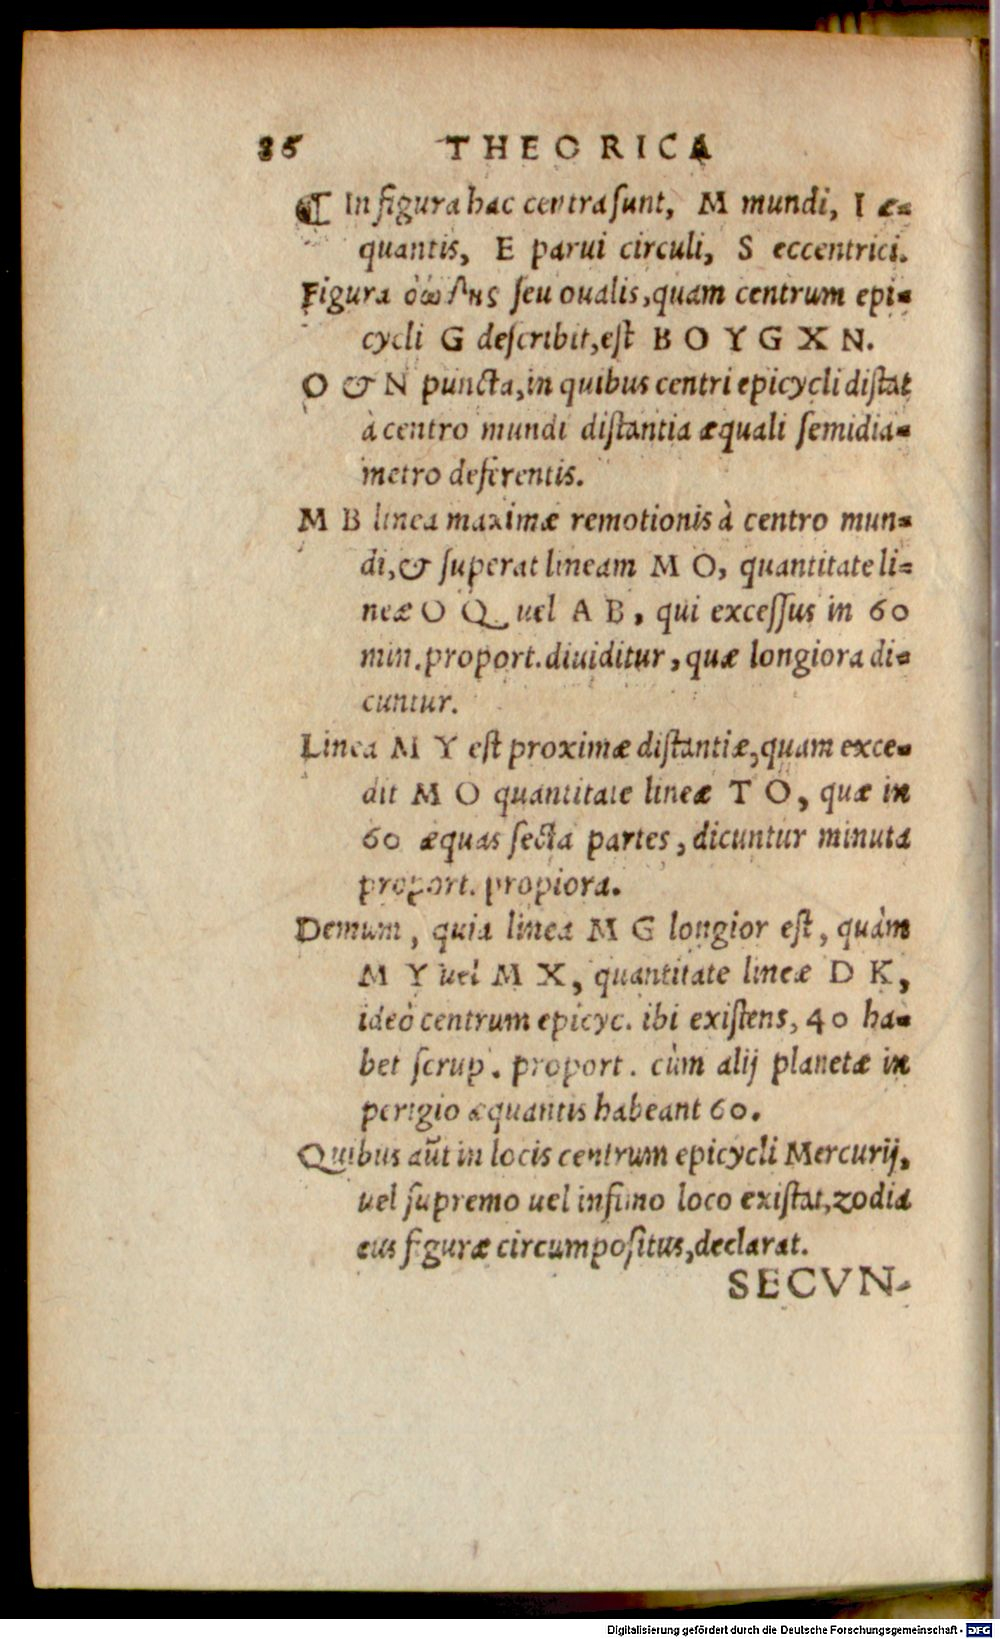 86 THEORICA
¶ In figura hac centra sunt, M mundi, I æ-
quantis, E parui circuli, S eccentrici.
Figura ὀώδης seu oualis, quam centrum epi-
cycli G describit, est B O Y G X N.
O & N puncta, in quibus centri epicycli distat
à centro mundi distantia æquali semidia-
metro deferentis.
M B linea maximæ remotionis à centro mun-
di, & superat lineam M O, quantitate li-
neæ O Q uel A B, qui excessus in 60
min. proport. diuiditur, quæ longiora di-
cuntur.
Linea M Y est proximæ distantiæ, quam exce-
dit M O quantitate lineæ T O, quæ in
60 æquas secta partes, dicuntur minuta
proport. propiora.
Demum, quia linea M G longior est, quàm
M Y uel M X, quantitate lineæ D K,
ideò centrum epicyc. ibi existens, 40 ha-
bet scrup. proport. cùm alij planetæ in
perigio æquantis habeant 60.
Quibus aūt in locis centrum epicycli Mercurij,
uel supremo uel infimo loco existat, zodia
cus figuræ circumpositus, declarat.
SECVN-
Digitalisierung gefördert durch die Deutsche Forschungsgemeinschaft - DFG